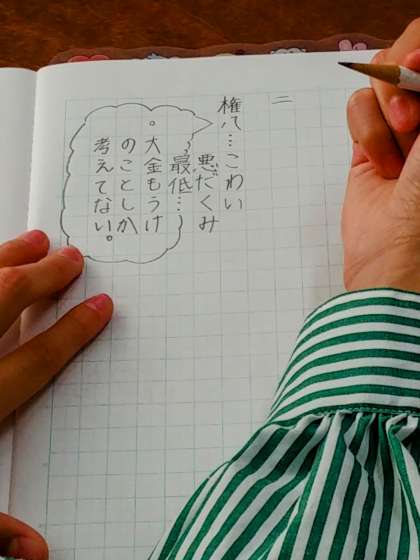 二
権八…こわい
悪だくみ
最低…
。大金もうけ
のことしか
考えてない。